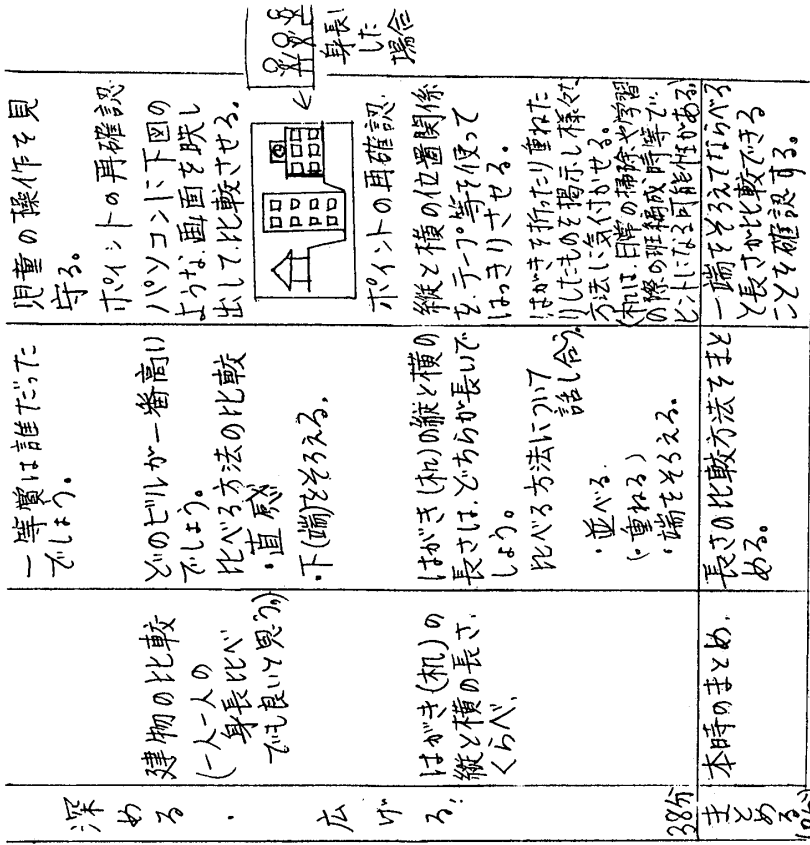 深める・広げる!
38分
建物の比較
(一人一人の
身長比べ
でも良いと思う。)
はがき(机)の
縦と横の長さ
くらべ.
一等賞は誰だった
でしょう。
どのビルが一番高い
でしょう。
比べる方法の比較
・直感
・下(端)をそろえる。
はがき(机)の縦と横の
長さは、どちらが長いで
しょう。
比べる方法について
話し合う。
・並べる.
(・重ねる)
・端をそろえる。
児童の操作を見
守る。
ポイントの再確認
パソコンに下図の
ような画面を映し
出して比較させる。
身長に
した
場合
ポイントの再確認.
縦と横の位置関係
を、テープ等を使って
はっきりさせる。
はがきを折ったり重ねた
りしたものを掲示し様々な
方法に気付かせる。
(机は、日常の掃除や学習
の際の班編成時等で、
ヒントになる可能性がある)
まとめる
本時のまとめ.
長さの比較方法をまと
める。
一端をそろえてならべる
と長さが比較できる
ことを確認する。